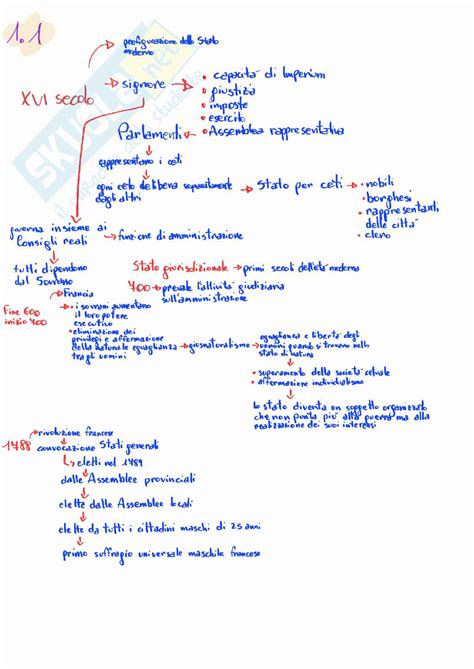 1.1
prefigurazione dello Stato
moderno
XVI secolo
signore
• capacità di Imperium
• giustizia
• imposte
• esercito
• Assemblea rappresentativa
Parlamenti
rappresentano i ceti
ogni ceto delibera separatamente
dagli altri
Stato per ceti
• nobili
• borghesi
• rappresentanti
delle città
• clero
governa insieme ai
Consigli reali
funzione di amministrazione
tutti dipendono
dal Sovrano
Stato giurisdizionale
primi secoli dell'età moderna
Francia
700
prevale l'attività giudiziaria
sull'amministrazione
Fine 600
inizio 700
• i sovrani aumentano
il loro potere
esecutivo
• eliminazione dei
privilegi e affermazione
della naturale eguaglianza
tra gli uomini
giusnaturalismo
eguaglianza e libertà degli
uomini quando si trovano nello
stato di natura
• superamento della società cetuale
• affermazione individualismo
lo stato diventa un soggetto organizzato
che non punta più alla guerra ma alla
realizzazione dei suoi interessi
rivoluzione francese
1788
convocazione Stati generali
eletti nel 1789
dalle Assemblee provinciali
elette dalle Assemblee locali
elette da tutti i cittadini maschi di 25 anni
primo suffragio universale maschile francese